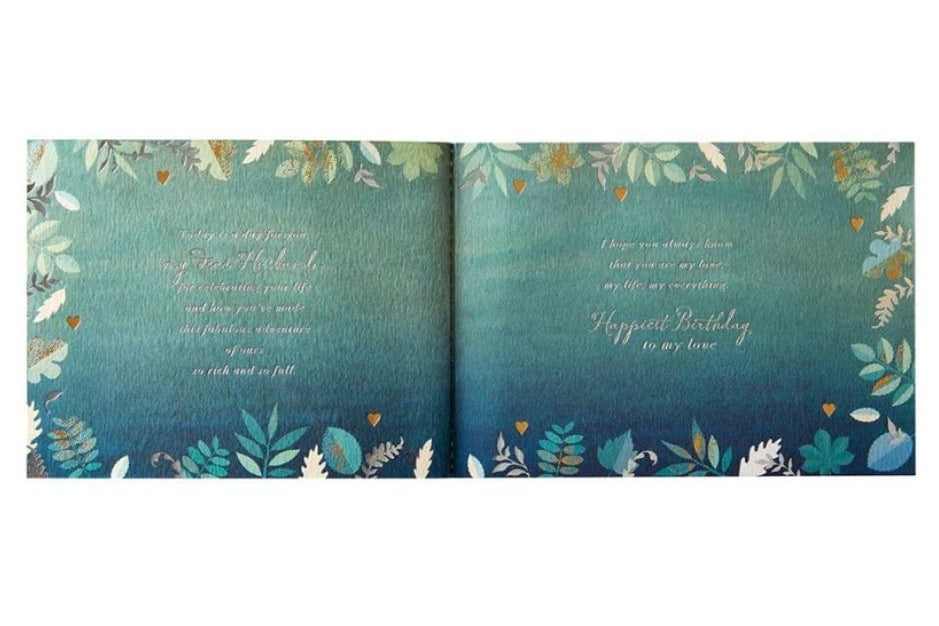 Today is a day for you,
my dear Husband,
for celebrating your life
and how you've made
this fabulous adventure
of ours
so rich and so full.
I hope you always know
that you are my love,
my life, my everything.
Happiest Birthday,
to my love